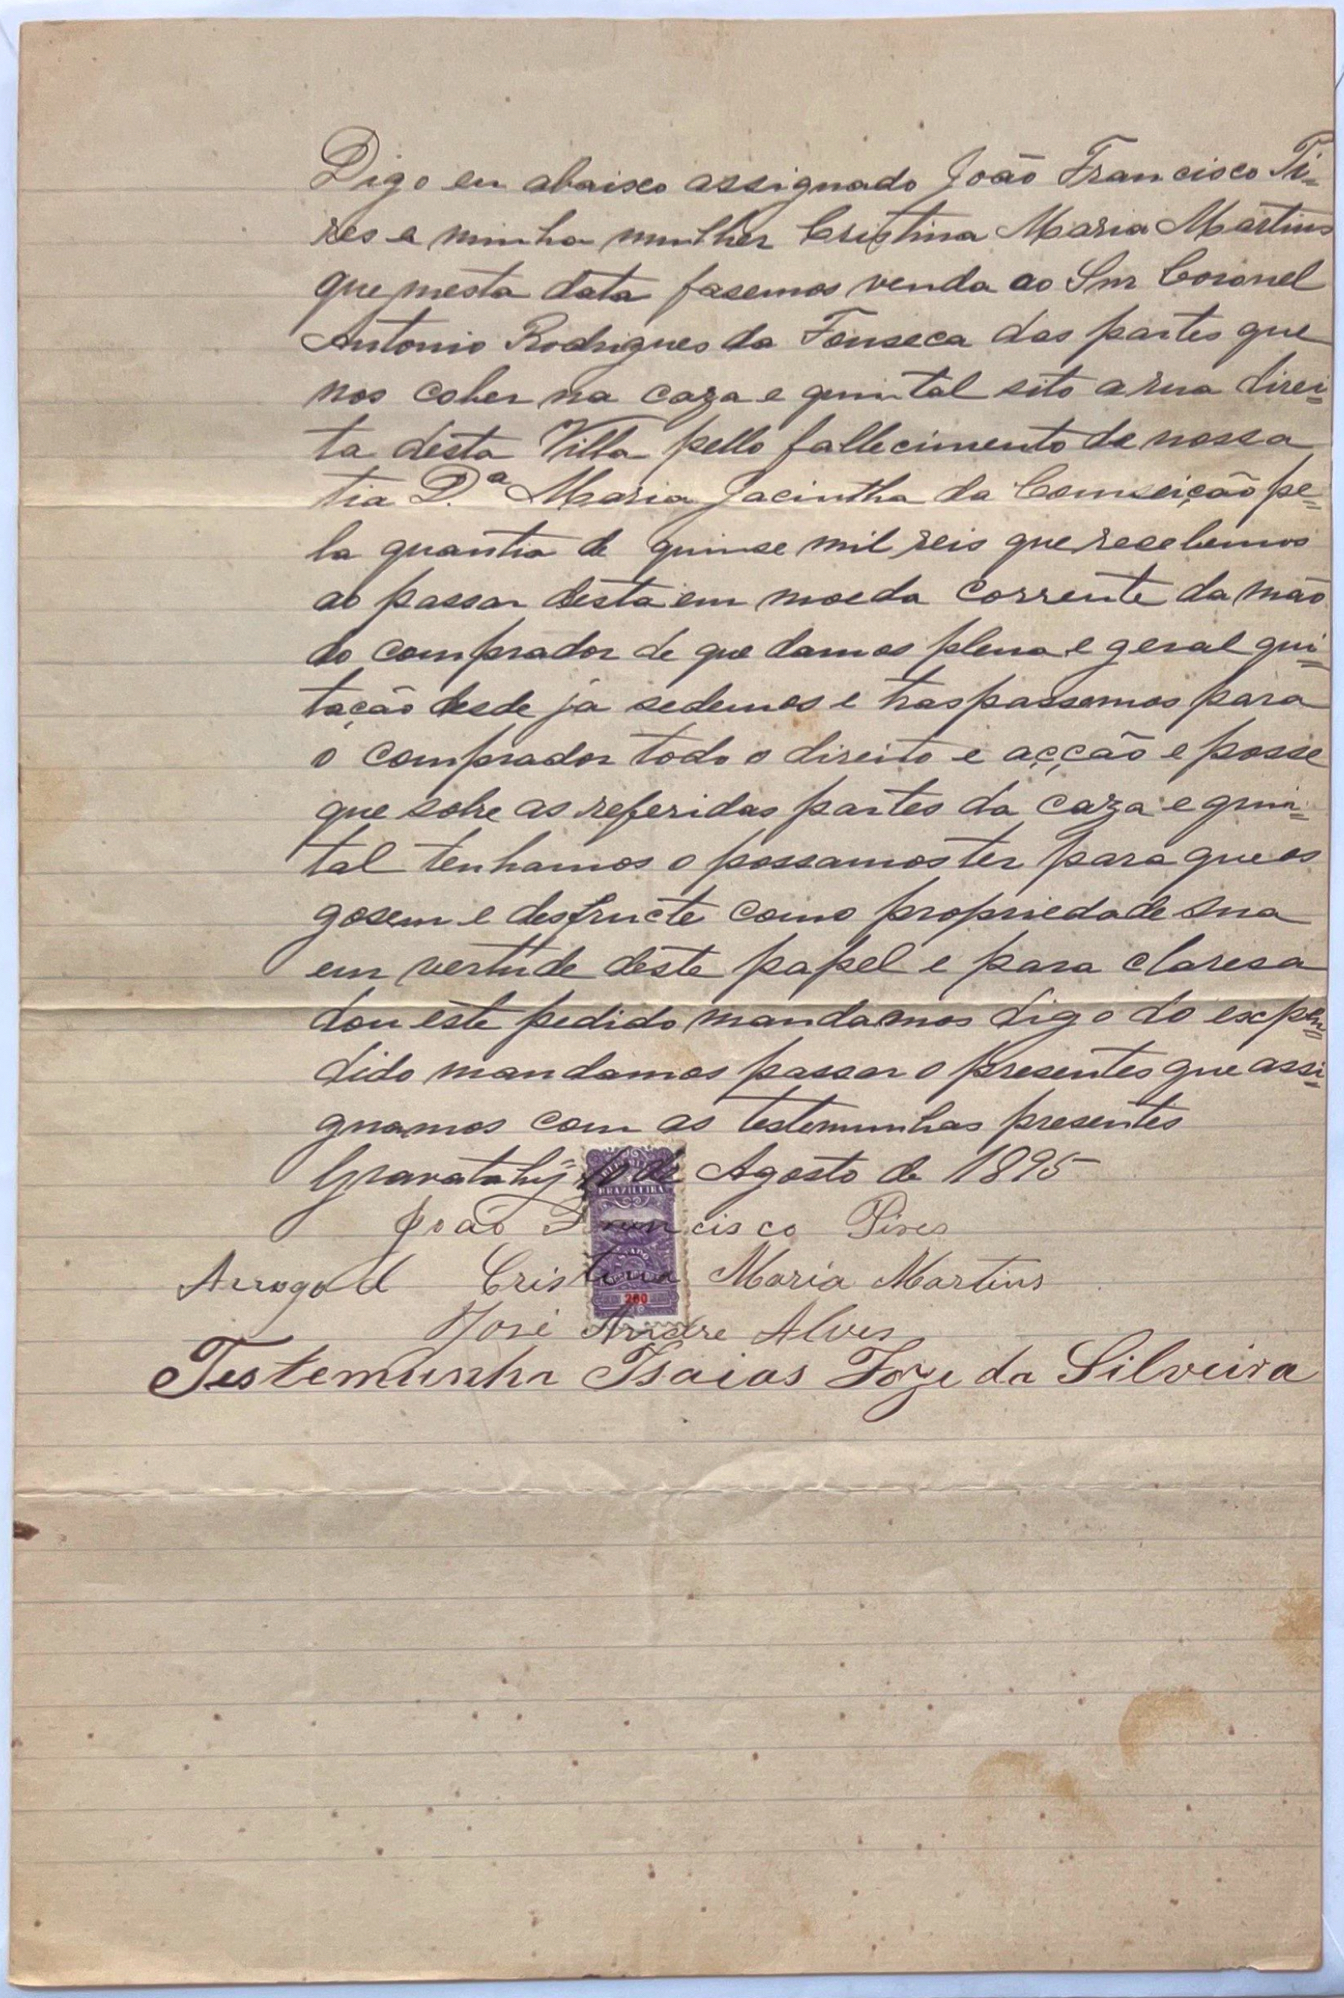 Digo eu abaixo assignado João Francisco Pi=
res e minha mulher Cristina Maria Martins
que nesta data fasemos venda ao Snr Coronel
Antonio Rodrigues da Fonseca das partes que
nos coher na caza e quintal sito a rua direi=
ta desta Villa pello fallecimento de nossa
tia D.ª Maria Jacintha da Comseição pe=
la quantia de quinse mil reis que recebemos
ao passar desta em moeda corrente da mão
do comprador de que damos plena e geral qui=
tação desde já sedemos e traspassemos para
o comprador todo o direito e acção e posse
que sobre as referidas partes da caza e quin=
tal tenhamos o possamos ter para que os
gosem e desfructe como propriedade sua
em vertude deste papel e para claresa
dou este pedido mandamos digo do expen=
dido mandamos passar o presentes que assi=
gnamos com as testemunhas presentes
Gravatahÿ 10 de Agosto de 1895
João Francisco Pires
Arrogo d Cristina Maria Martins
José Andre Alves
Testemunha Isaias Foze da Silveira
BRAZILEIRA
200